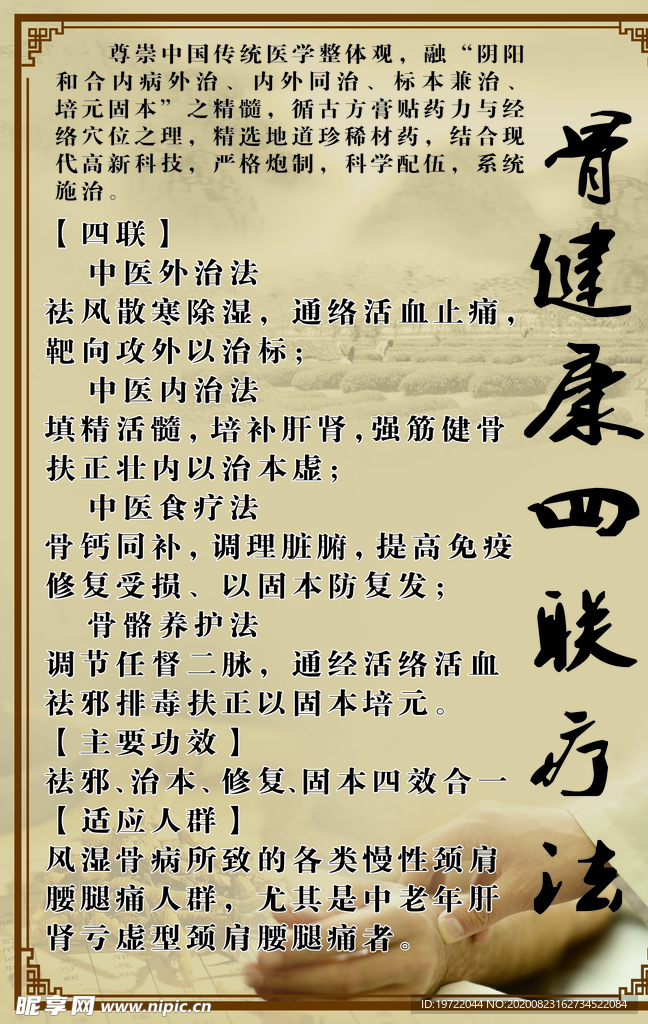 骨健康四联疗法
尊崇中国传统医学整体观，融“阴阳
和合内病外治、内外同治、标本兼治、
培元固本”之精髓，循古方膏贴药力与经
络穴位之理，精选地道珍稀材药，结合现
代高新科技，严格炮制，科学配伍，系统
施治。
【四联】
中医外治法
祛风散寒除湿，通络活血止痛，
靶向攻外以治标；
中医内治法
填精活髓，培补肝肾，强筋健骨
扶正壮内以治本虚；
中医食疗法
骨钙同补，调理脏腑，提高免疫
修复受损、以固本防复发；
骨骼养护法
调节任督二脉，通经活络活血
祛邪排毒扶正以固本培元。
【主要功效】
祛邪、治本、修复、固本四效合一
【适应人群】
风湿骨病所致的各类慢性颈肩
腰腿痛人群，尤其是中老年肝
肾亏虚型颈肩腰腿痛者。
昵享网 www.nipic.cn
ID:19722044 NO:20200823162734522084